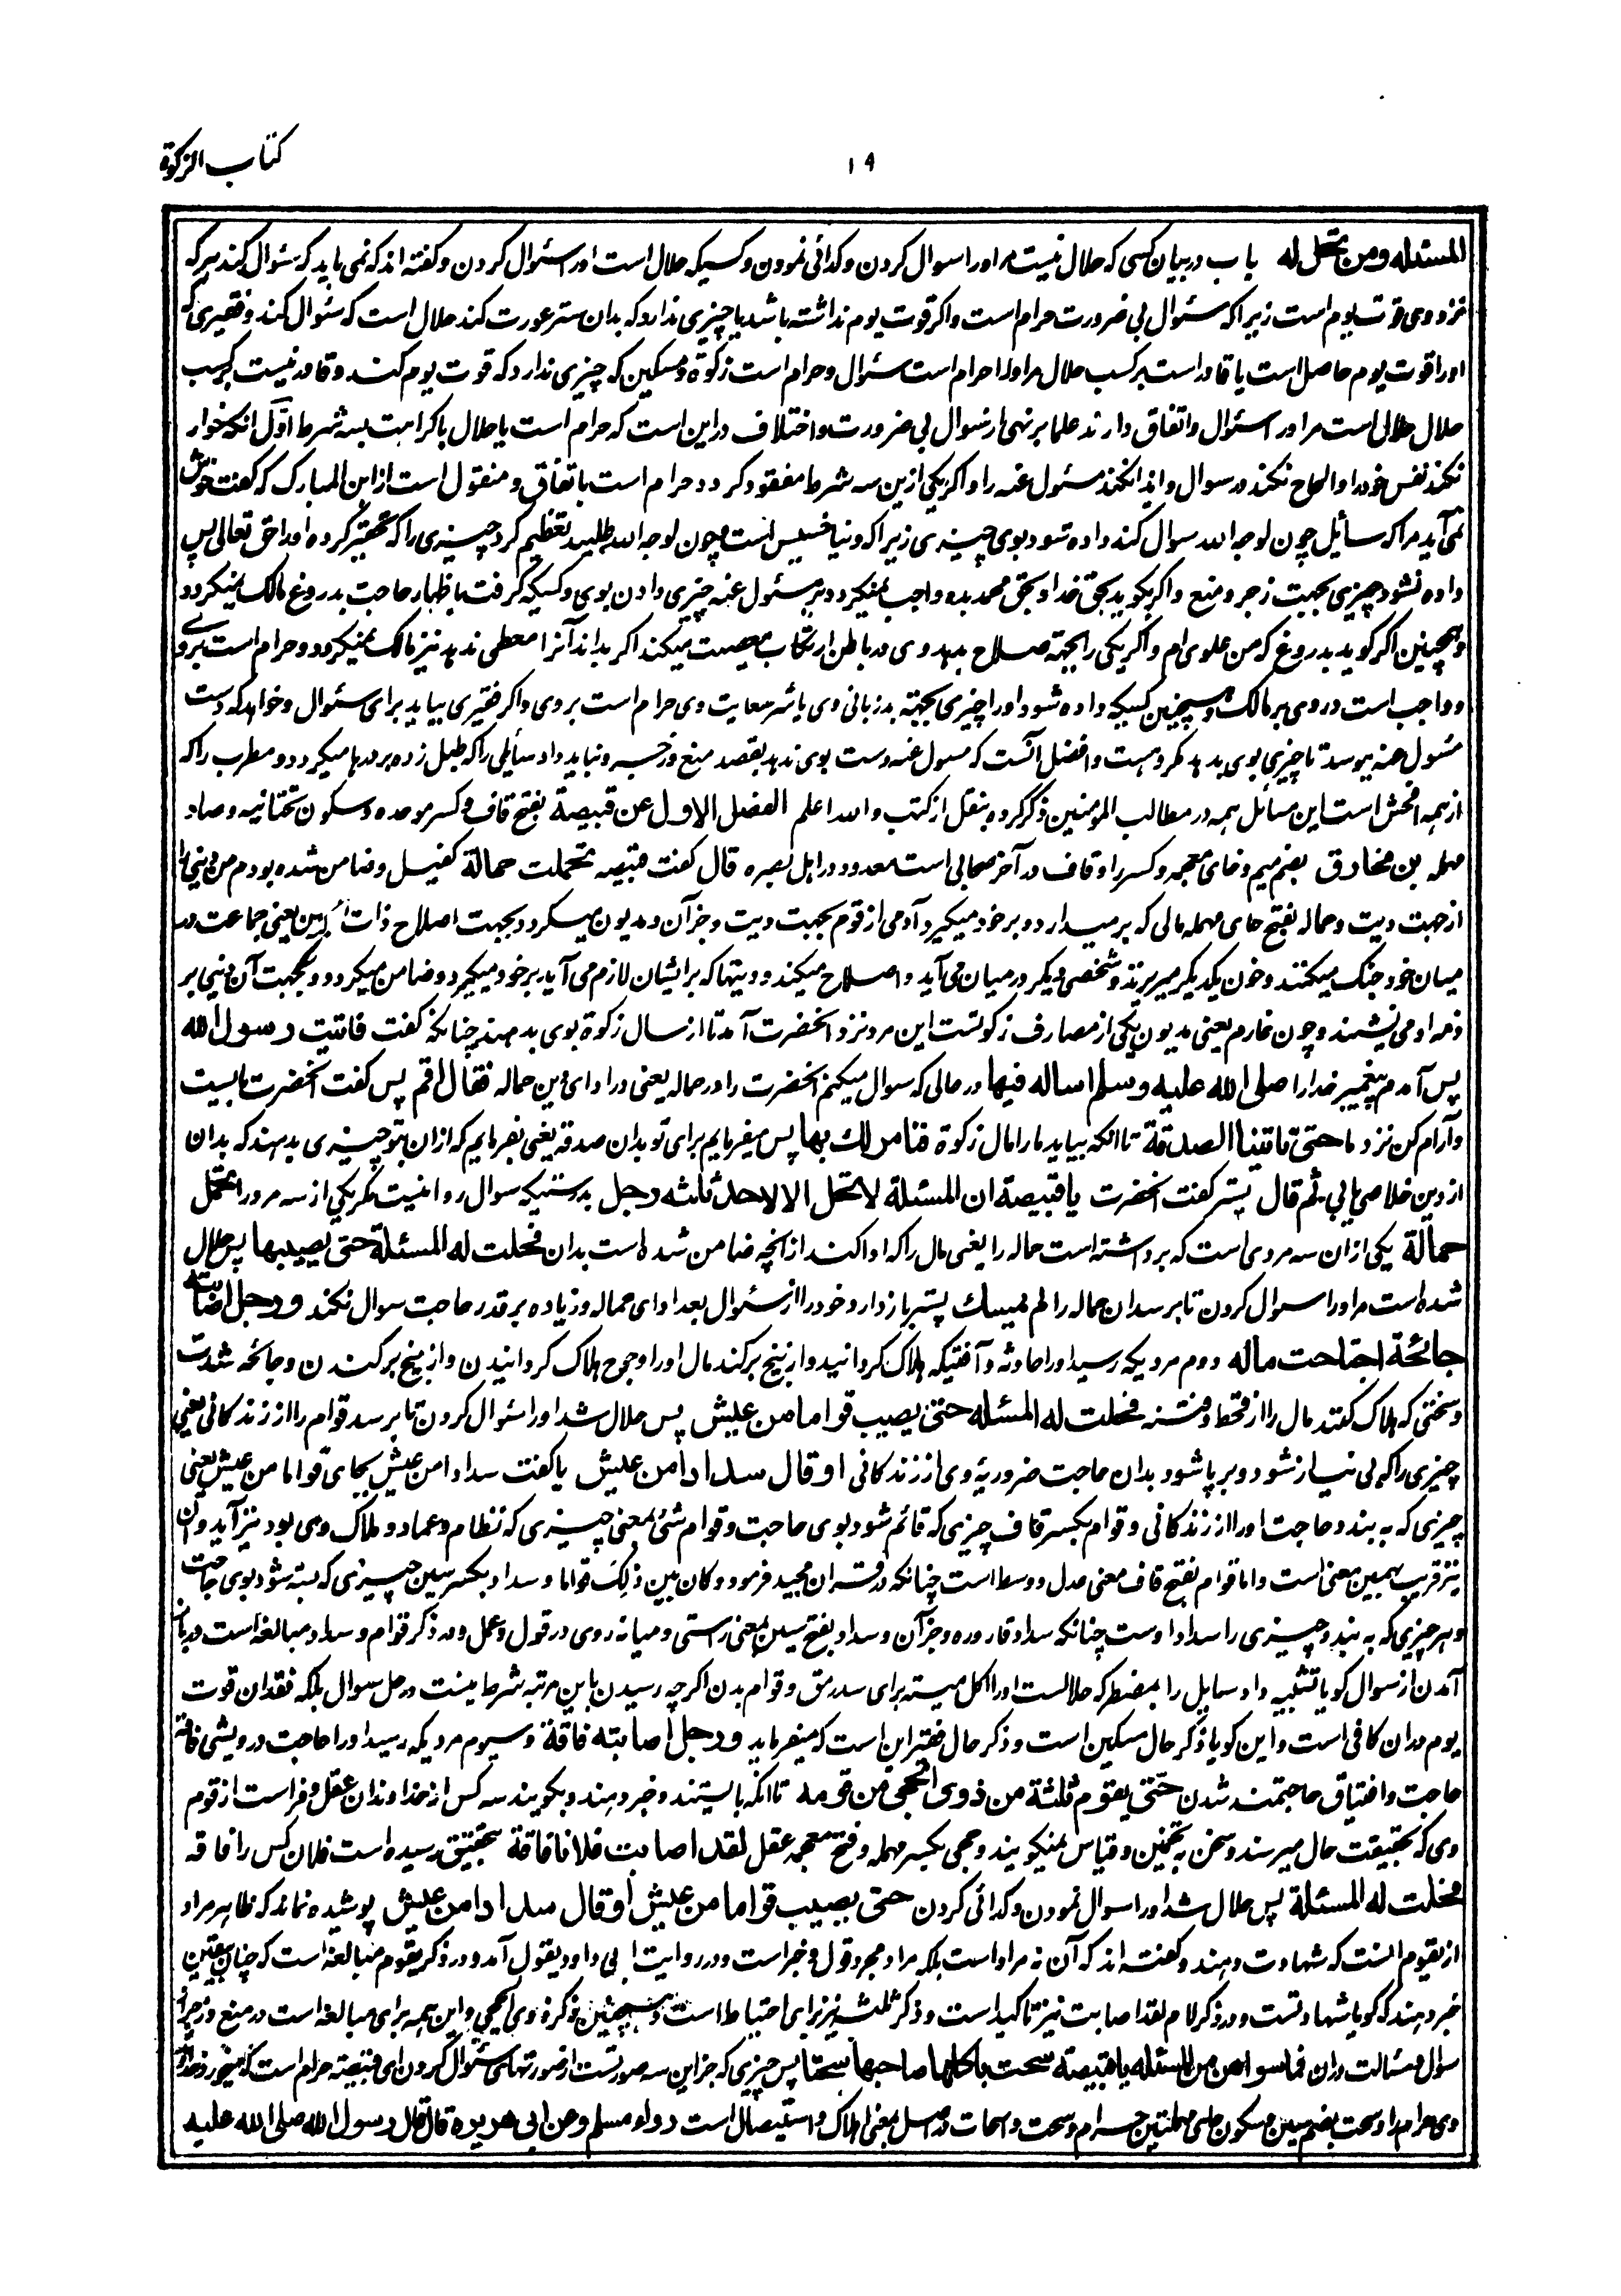 کتاب الزکوة
۱۹
المسئله ومن تحل له باب در بیان کسی که حلال نیست مر اورا سوال کردن و کدائی نمودن و کسیکه حلال است اورا سئوال کردن و کفته اند که نمی باید که سئوال کند هر که
نزد وی قوت یوم است زیرا که سئوال بی ضرورت حرام است و اکر قوت یوم نداشته باشد یا چیزی ندارد که بدان ستر عورت کند حلال است که سئوال کند و فقیری که
اورا قوت یوم حاصل است یا قادر است بر کسب حلال مر اورا حرام است سئوال و حرام است زکوة و مسکین که چیزی ندارد که قوت یوم کند و قادر نیست بر کسب
حلال حلال است مر اورا سئوال و اتفاق دارند علما بر نهی از سوال بی ضرورت و اختلاف در این است که حرام است یا حلال با کراهت بسه شرط اول آنکه خوار
نکند نفس خود را و الحاح نکند در سوال و ایذا نکند مسئول عنه را و اکر یکی ازین سه شرط مفقود کردد حرام است باتفاق و منقول است از ابن المبارک که کفت خوش
نمی آید مرا که سائل چون لوجه الله سوال کند داده شود بوی چیزی زیرا که دنیا خسیس است و چون لوجه الله طلبید تعظیم کرد چیزی را که تحقیر کرده اورا حق تعالی پس
داده نشود چیزی بجهت زجر و منع و اکر بکوید بحق خدا و بحق محمد بده واجب نمیکردد بر مسئول عنه چیزی دادن بوی و کسیکه کرفت باظهار حاجت بدروغ مالک نمیکردد
و همچنین اکر کوید بدروغ که من علوی ام و اکر یکی را بجهة صلاح بدهد وی در باطن ارتکاب معصیت میکند اکر بداند آنرا معطی ندهد نیز مالک نمیکردد و حرام است بر وی
و واجب است در وی بر مالک و همچنین کسیکه داده شود اورا چیزی بجهة بدزبانی وی یا شر سعایت وی حرام است بر وی و اکر فقیری بیاید برای سئوال و خواهد که دست
مسئول عنه ببوسد تا چیزی بوی بدهد مکروهست و افضل آنست که مسول عنه دست بوی ندهد بقصد منع و زجر و نباید داد سائلی را که طبل زده بر درها میکردد و مطرب را که
از همه افحش است این مسائل همه در مطالب المؤمنین ذکر کرده بنقل از کتب والله اعلم الفصل الاول عن قبیصة بفتح قاف و کسر موحده و سکون تحتانیه و صاد
مهمله بن مخارق بضم میم و خای معجمه و کسر را و قاف در آخر صحابی است معدود در اهل بصره قال کفت قبیصه تحملت حمالة کفیل و ضامن شده بودم من دینی را
از جهت دیت و حماله بفتح حای مهمله مالی که بر میدارد و بر خود میکیرد آدمی از قوم بجهت دیت و جز آن و مدیون میکردد بجهت اصلاح ذات البین یعنی جماعت در
میان خود جنک میکنند و خون یکدیکر میریزند و شخصی دیکر در میان می آید و اصلاح میکند و دیتها که بر ایشان لازم می آید بر خود میکیرد و ضامن میکردد و بجهت آن دینی بر
ذمه او می نشیند و چون غارم یعنی مدیون یکی از مصارف زکوتست این مرد نزد آنحضرت آمد تا از مال زکوة بوی بدهند چنانکه کفت فاتیت رسول الله
پس آمدم پیغمبر خدا را صلی الله علیه وسلم اساله فیها در حالی که سوال میکنم آنحضرت را در حماله یعنی در ادای دین حماله فقال اقم پس کفت آنحضرت بایست
و آرام کن نزد ما حتی تاتینا الصدقة تا آنکه بیاید ما را مال زکوة فنامر لک بها پس میفرمایم برای تو بدان صدقه یعنی بفرمایم که ازان بتو چیزی بدهند که بدان
از دین خلاصی یابی ثم قال پستر کفت آنحضرت یا قبیصة ان المسئلة لا تحل الا لاحد ثلثه رجل بدرستیکه سوال روا نیست مکر یکی از سه مرد را تحمل
حمالة یکی ازان سه مردی است که برداشته است حماله را یعنی مال را که ادا کند از انچه ضامن شده است بدان فحلت له المسئلة حتی یصیبها پس حلال
شده است مر اورا سوال کردن تا برسد ان حماله را ثم یمسک پستر باز دارد خود را از سئوال بعد ادای حماله و زیاده بر قدر حاجت سوال نکند و رجل اصابته
جائحة اجتاحت ماله دوم مردیکه رسید اورا حادثه و آفتیکه هلاک کردانید و از بیخ برکند مال اورا و جوح هلاک کردانیدن و از بیخ برکندن و جائحه شدت
و سختی که هلاک کند مال را از قحط و فتنه فحلت له المسئله حتی یصیب قواما من عیش پس حلال شد اورا سئوال کردن تا برسد قوام را از زندکانی یعنی
چیزی را که بی نیاز شود و برپا شود بدان حاجت ضروریۀ وی از زندکانی او قال سدادا من عیش یا کفت سدادا من عیش بجای قواما من عیش یعنی
چیزی که به بندد حاجت اورا از زندکانی و قوام بکسر قاف چیزی که قائم شود بوی حاجت و قوام شئ بمعنی چیزی که نظام و عماد و ملاک وی بود نیز آید و آن
نیز قریب بهمین معنی است و اما قوام بفتح قاف معنی عدل و وسط است چنانکه در قران مجید فرموده و کان بین ذلک قواما و سداد بکسر سین چیزی که بسته شود بوی حاجت
و هر چیزی که به بندد چیزی را سداد اوست چنانکه سداد قاروره و جز آن و سداد بفتح سین بمعنی راستی و میانه روی در قول و عمل و در ذکر قوام و سداد مبالغه است در باز
آمدن از سوال کویا تشبیه داد سایل را بمضطر که حلالست اورا اکل میته برای سد رمق و قوام بدن اکرچه رسیدن باین مرتبه شرط نیست در حل سوال بلکه فقدان قوت
یوم دران کافی است و این کویا ذکر حال مسکین است و ذکر حال فقیر این است که میفرماید و رجل اصابته فاقة و سیوم مردیکه رسید اورا حاجت درویشی فاقة
حاجت و افتیاق حاجتمند شدن حتی یقوم ثلثة من ذوی الحجی من قومه تا آنکه بایستند و خبر دهند و بکویند سه کس از خداوندان عقل و فراست از قوم
وی که بحقیقت حال میرسند و سخن به تخمین و قیاس نمیکویند و حجی بکسر مهمله و فتح معجمه عقل لقد اصابت فلانا فاقة بتحقیق رسیده است فلان کس را فاقه
فحلت له المسئلة پس حلال شد اورا سوال نمودن و کدائی کردن حتی یصیب قواما من عیش أو قال سدادا من عیش پوشیده نماند که ظاهر مراد
از یقوم انست که شهادت دهند و کفته اند که آن نه مراد است بلکه مراد مجرد قول و خبر است و در روایت ابی داود یقول آمد و در ذکر یقوم مبالغه است که چنان بیقین
خبر دهند که کویا شهادتست و در ذکر لام لقد اصابت نیز تاکید است و ذکر ثلثه نیز برای احتیاط است و همچنین ذکر ذوی الحجی و این همه برای مبالغه است در منع و زجر از
سؤال و مسئالت دران فما سواهن من المسئله یا قبیصة سحت یاکلها صاحبها سحتا پس چیزی که جز این سه صورتست از صورتهای سئوال کردن ای قبیصه حرام است که میخورد خداوند
وی حرام را و سحت بضم سین و سکون حای مهملتین حرام و سحت و اسحات در اصل بمعنی اهلاک و استیصال است رواه مسلم وعن ابی هریره قال قال رسول الله صلی الله علیه